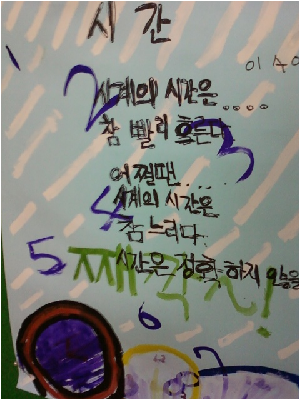 시간
2 시계의 시간은....
참 빨리 흐른다 3
어쩔땐....
4 시계의 시간은
참 느리다.
5 시간은 정확하지 않을
6
7